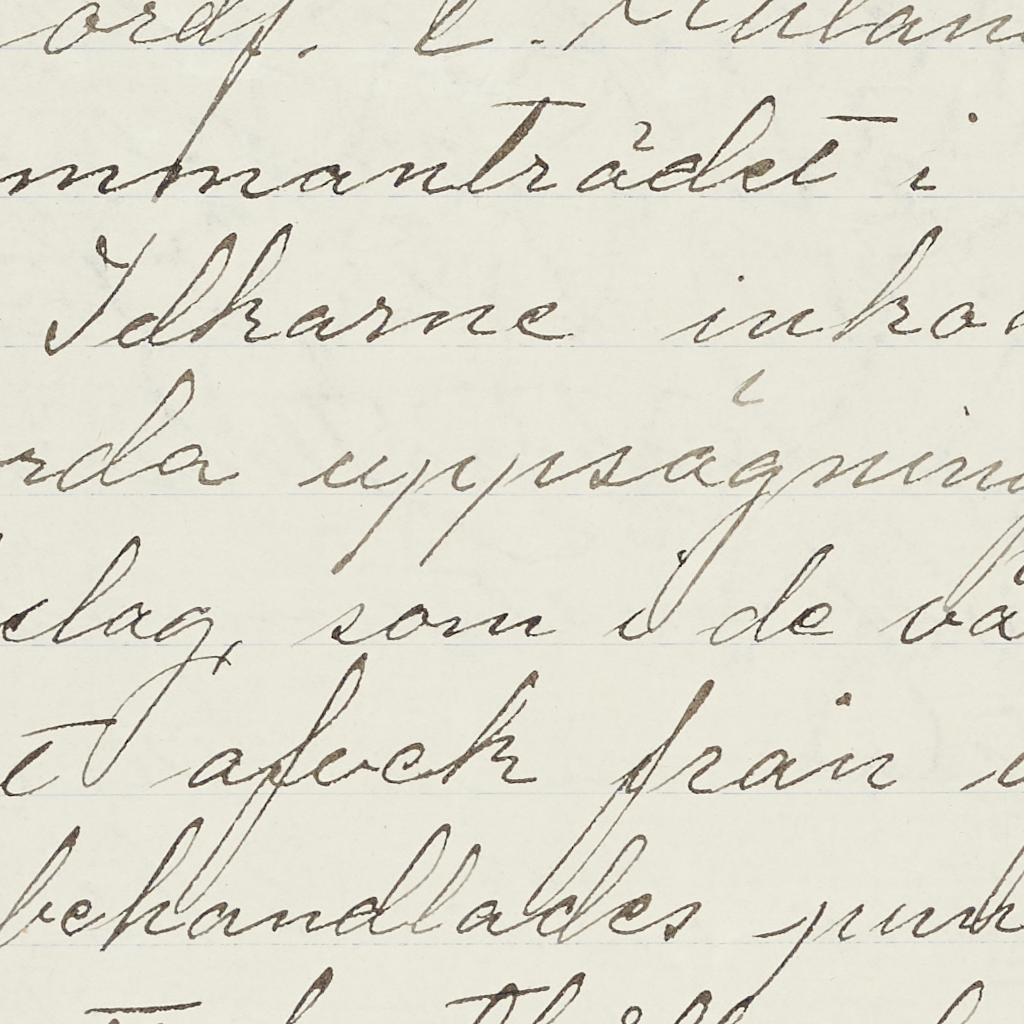 ordf. E.
mmanträdet i
Idkarne inko
rda uppsägning
slag, som i de vä
t afvek från
behandlades punk